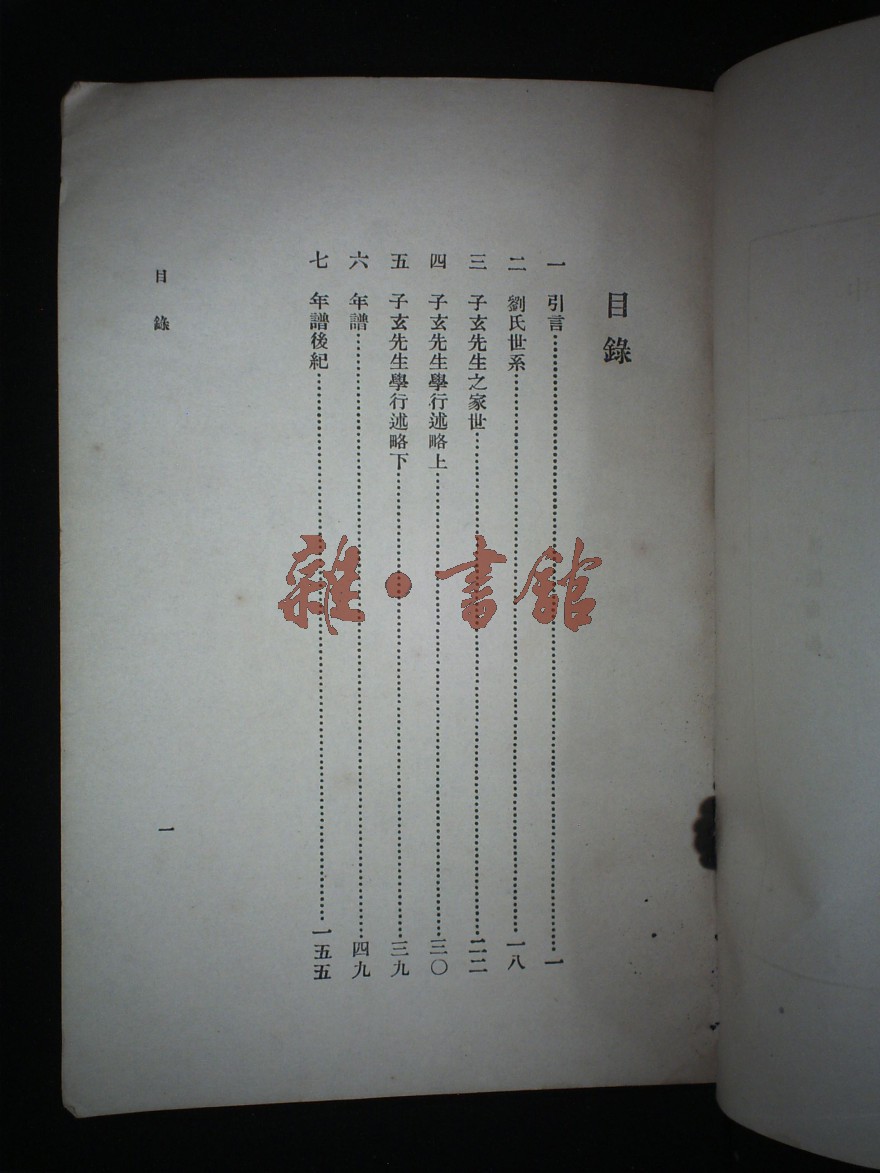 目錄
一 引言…………一
二 劉氏世系…………一八
三 子玄先生之家世…………二二
四 子玄先生學行述略上…………三〇
五 子玄先生學行述略下…………三九
六 年譜…………四九
七 年譜後紀…………一五五
目錄
一
雜·書館